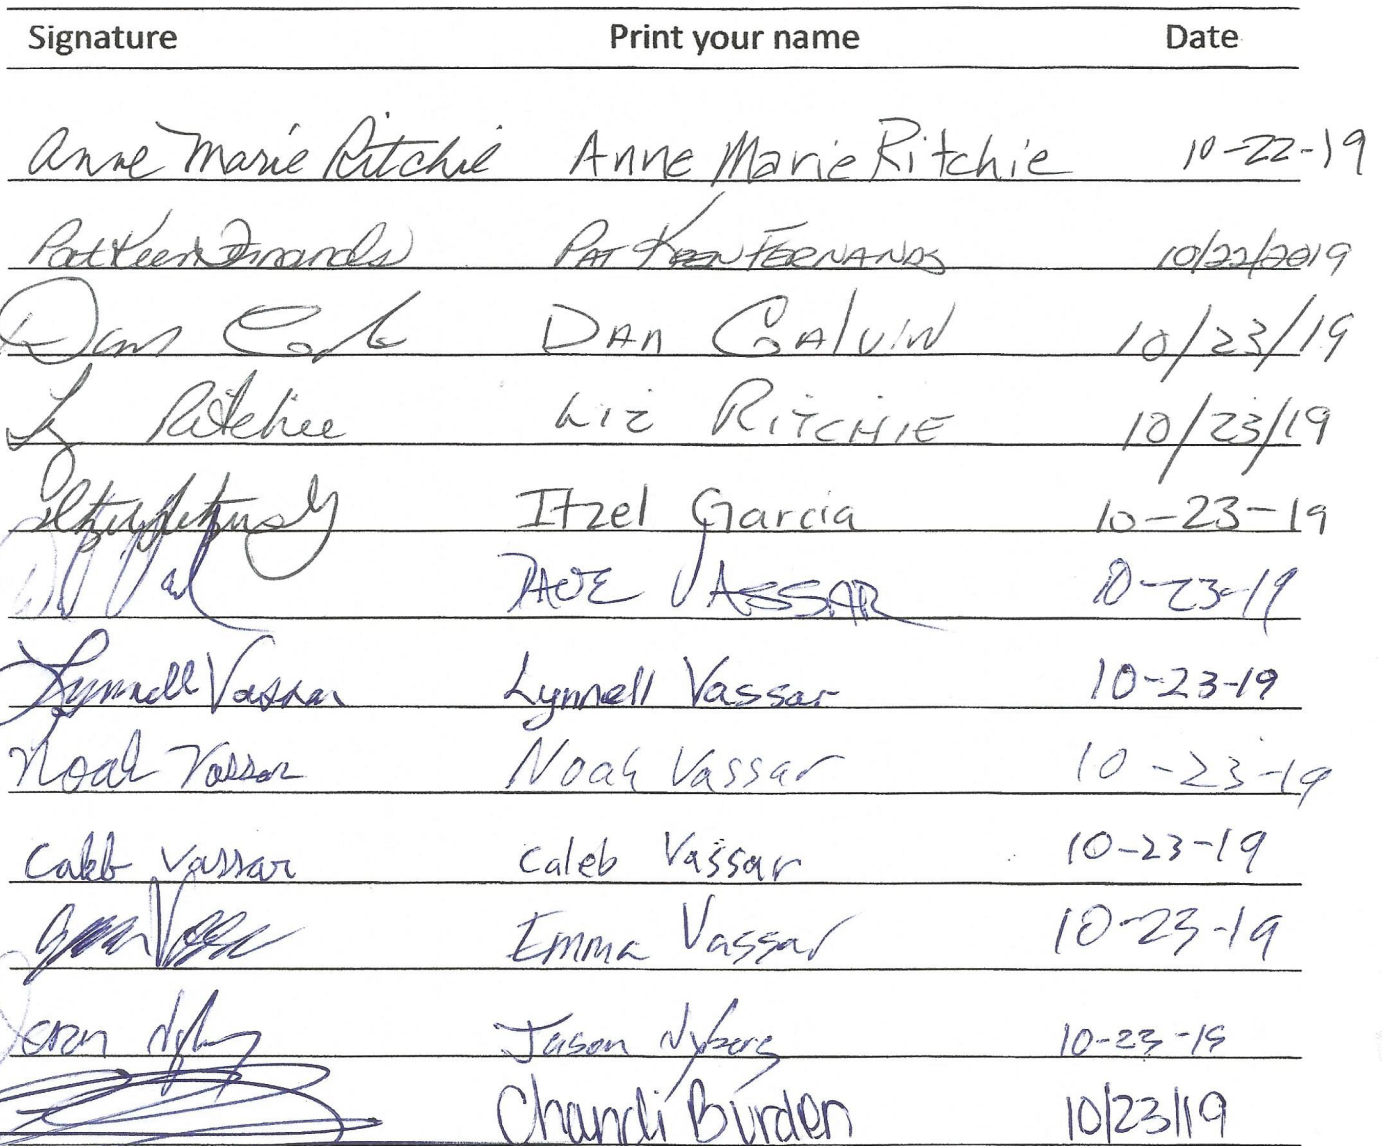 Signature Print your name Date
Anne Marie Ritchie Anne Marie Ritchie 10-22-19
Pat Keen Fernands PAT KEEN FERNANDS 10/22/2019
Dan DAN GALVIN 10/23/19
L Ritchie LIZ RITCHIE 10/23/19
Itzel Garcia 10-23-19
DAVE VASSAR 10-23-19
Lynnell Vassar Lynnell Vassar 10-23-19
Noah Vassar Noah Vassar 10-23-19
Caleb Vassar Caleb Vassar 10-23-19
Emma Vassar 10-23-19
Jason Nyberg 10-23-19
Chandi Burden 10/23/19